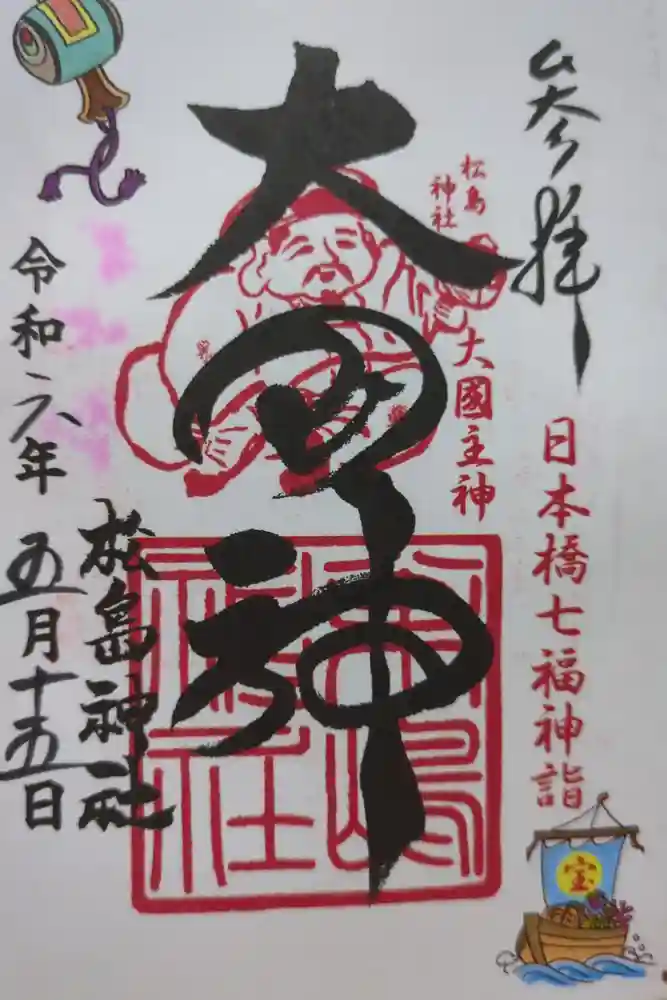 参拝
日本橋七福神詣
松島
神社
大國主神
大国神
松島神社
令和六年 五月十五日
松嶋
神社
宝